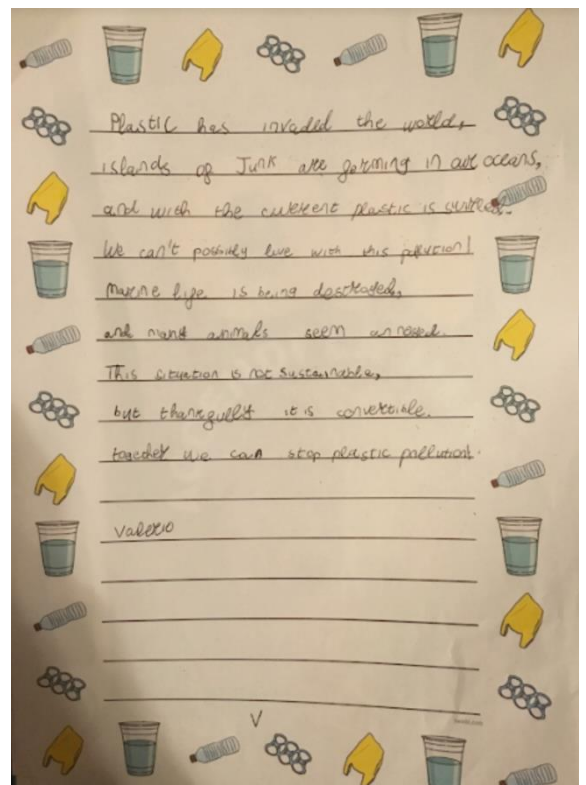 Plastic has invaded the world,
islands of Junk are forming in our oceans,
and with the current plastic is
We can't possibly live with this pollution!
Marine life is being destroyed,
and many animals seem annoyed.
This situation is not sustainable,
but thankfully it is convertible.
together we can stop plastic pollution!
Valerio
V